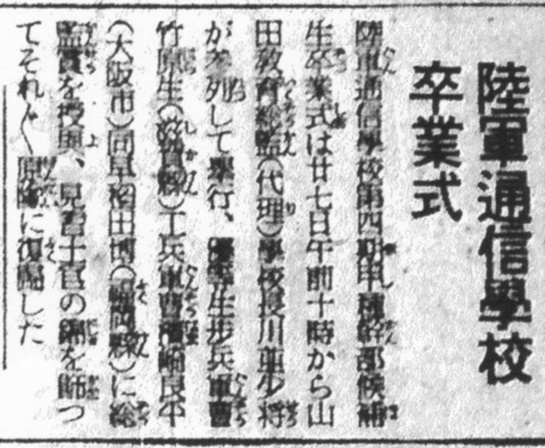 陸軍通信學校
卒業式
陸軍通信學校第四期甲種幹部候補
生卒業式は廿七日午前十時から山
田敎育總監(代理)學校長川並少將
が參列して擧行、優等生步兵軍曹
竹原生(滋賀縣)工兵軍曹濱崎良平
(大阪市)同早稻田博(福岡縣)に總
監賞を授與、見習士官の錦を飾つ
てそれ〲原隊に復歸した